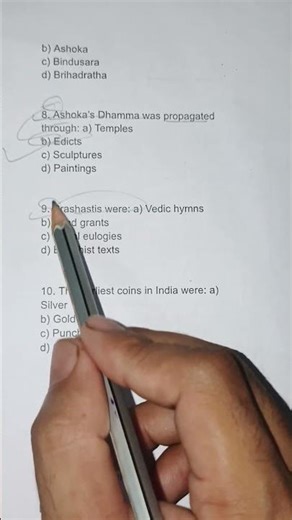 b) Ashoka
c) Bindusara
d) Brihadratha
8. Ashoka's Dhamma was propagated
through: a) Temples
b) Edicts
c) Sculptures
d) Paintings
9. Prashastis were: a) Vedic hymns
b) grants
c) eulogies
d) texts
10. coins in India were: a)
Silver
b) Gold
c)
d)